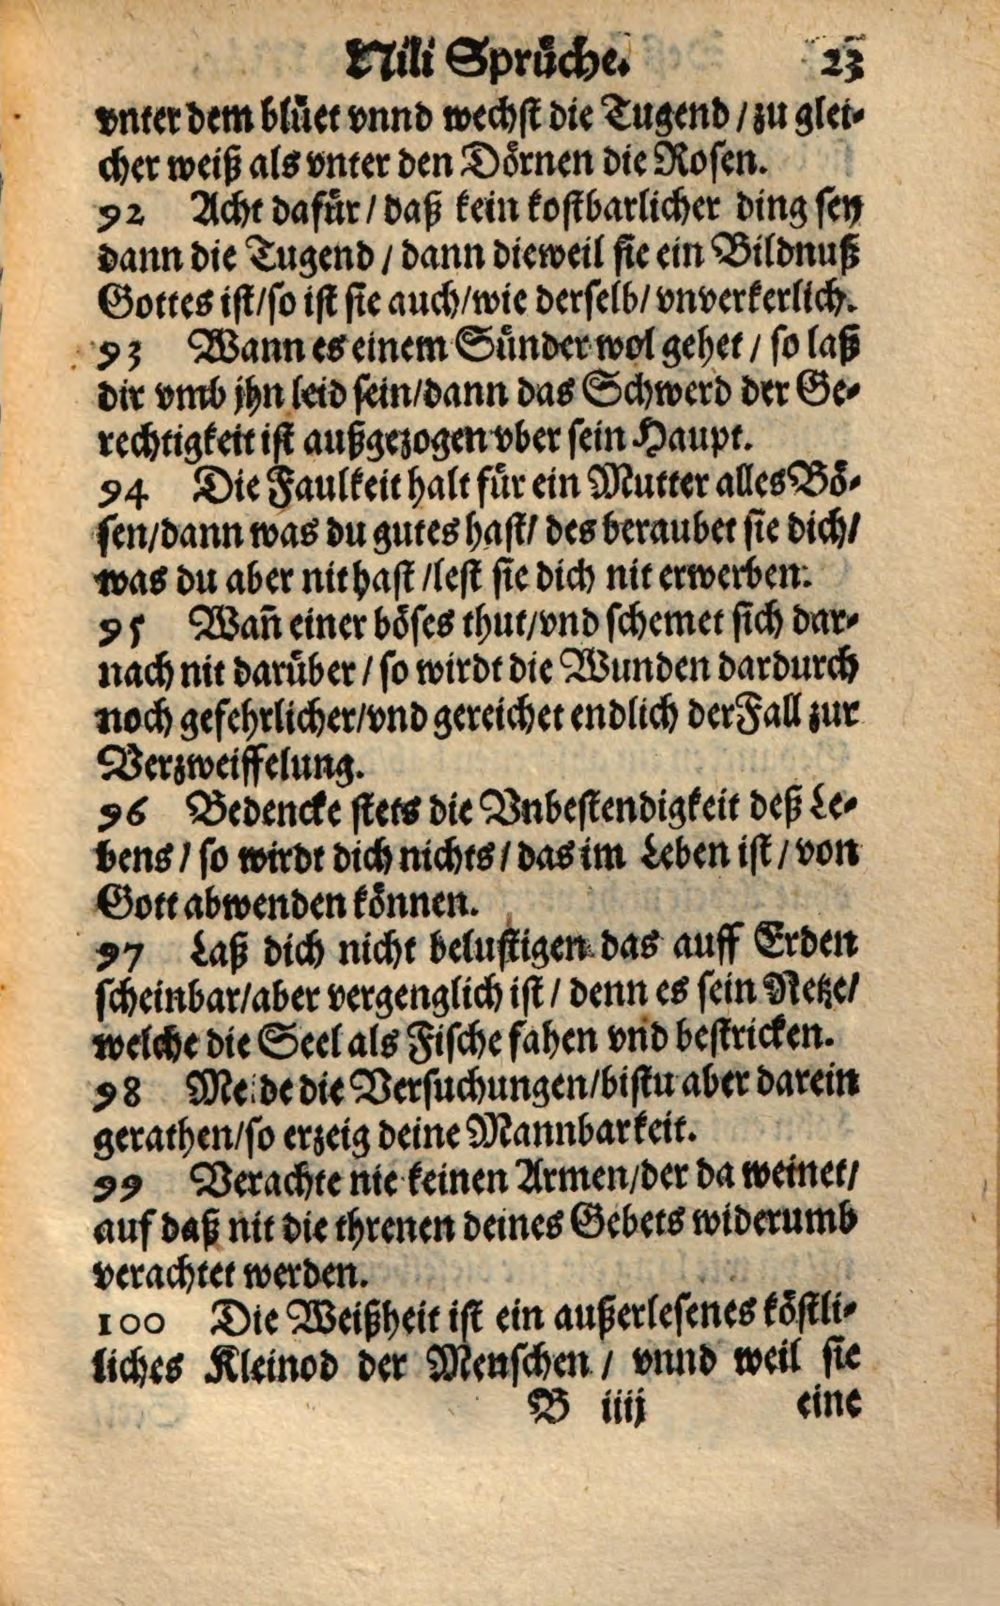 Nili Sprüche. 23
vnter dem blüet vnnd wechst die Tugend / zu glei-
cher weiß als vnter den Dörnen die Rosen.
92 Acht dafür / daß kein kostbarlicher ding sey
dann die Tugend / dann dieweil sie ein Bildnuß
Gottes ist/so ist sie auch/wie derselb/ vnverkerlich.
93 Wann es einem Sünder wol gehet / so laß
dir vmb jhn leid sein/dann das Schwerd der Ge-
rechtigkeit ist außgezogen vber sein Haupt.
94 Die Faulkeit halt für ein Mutter alles Bö-
sen/dann was du gutes hast/ des beraubet sie dich/
was du aber nit hast /lest sie dich nit erwerben.
95 Wañ einer böses thut/vnd schemet sich dar-
nach nit darüber / so wirdt die Wunden dardurch
noch gefehrlicher/vnd gereichet endlich der Fall zur
Verzweiffelung.
96 Bedencke stets die Vnbestendigkeit deß Le-
bens / so wirdt dich nichts / das im Leben ist / von
Gott abwenden können.
97 Laß dich nicht belustigen das auff Erden
scheinbar/aber vergenglich ist / denn es sein Netze/
welche die Seel als Fische fahen vnd bestricken.
98 Meide die Versuchungen/bistu aber darein
gerathen/so erzeig deine Mannbarkeit.
99 Verachte nie keinen Armen/der da weinet/
auf daß nit die threnen deines Gebets widerumb
verachtet werden.
100 Die Weißheit ist ein außerlesenes köstli-
liches Kleinod der Menschen / vnnd weil sie
B iiij eine